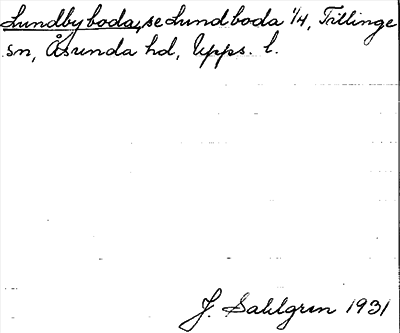 Lundbyboda, se Lundboda 1/4, Tillinge
sn, Åsunda hd, Upps. l.
J. Sahlgren 1931